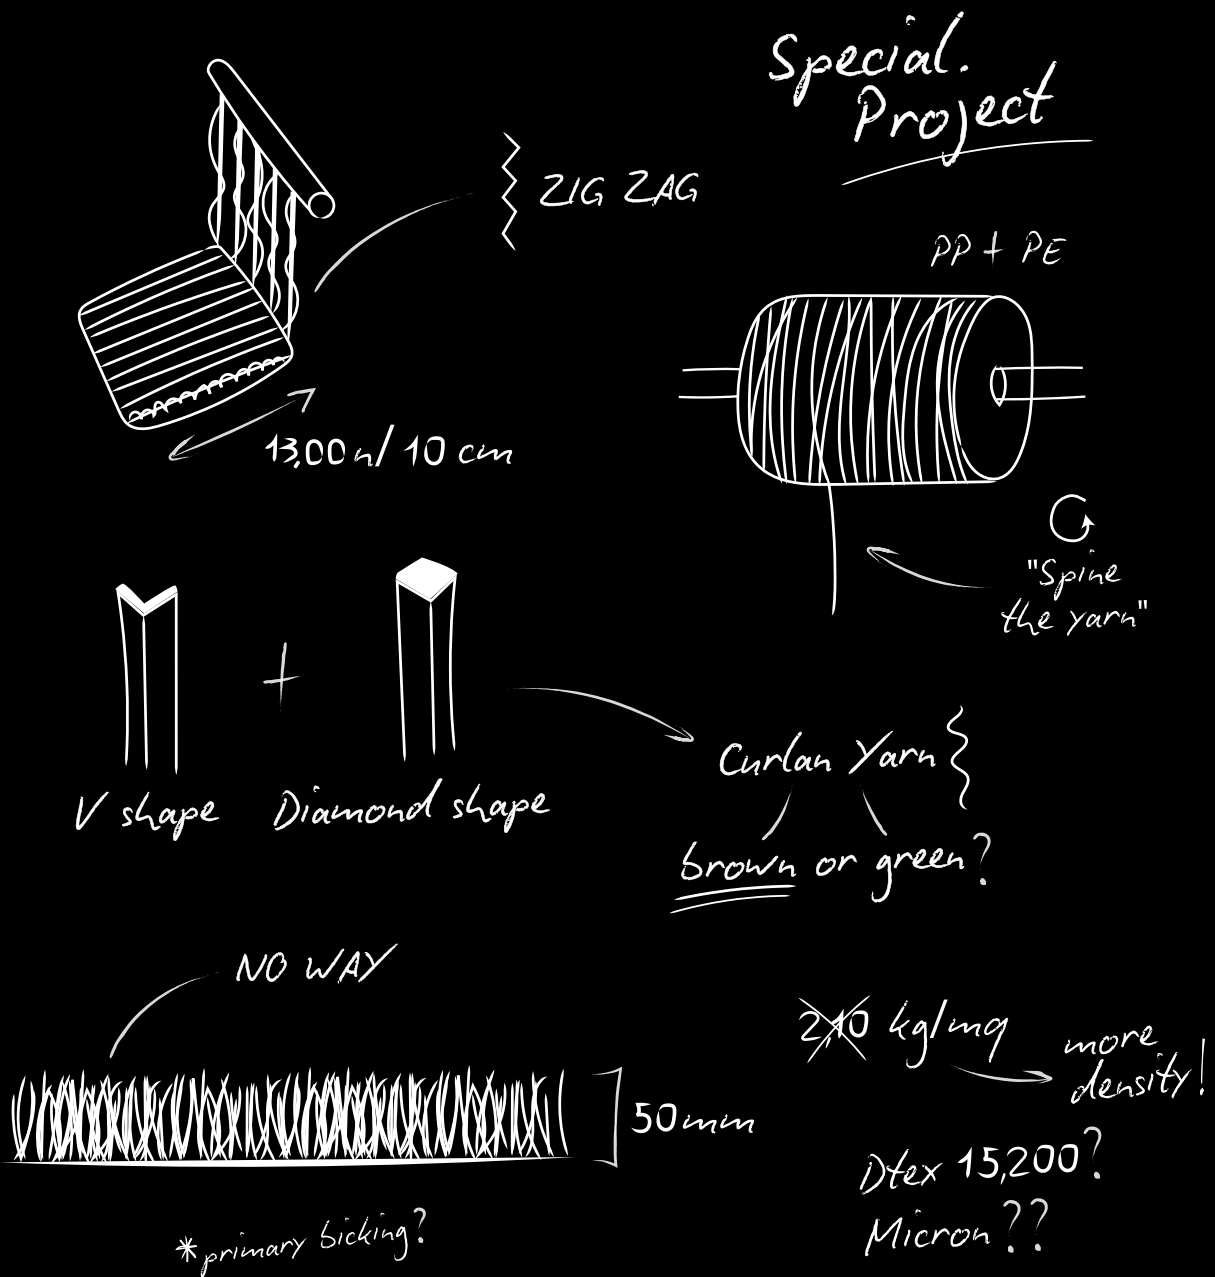 Special.
Project
ZIG ZAG
PP + PE
13,00 n/ 10 cm
"Spine
the yarn"
V shape + Diamond shape
Curlan Yarn
brown or green?
NO WAY
2,10 kg/mq
more
density!
50 mm
Dtex 15,200?
Micron ??
*primary bicking?